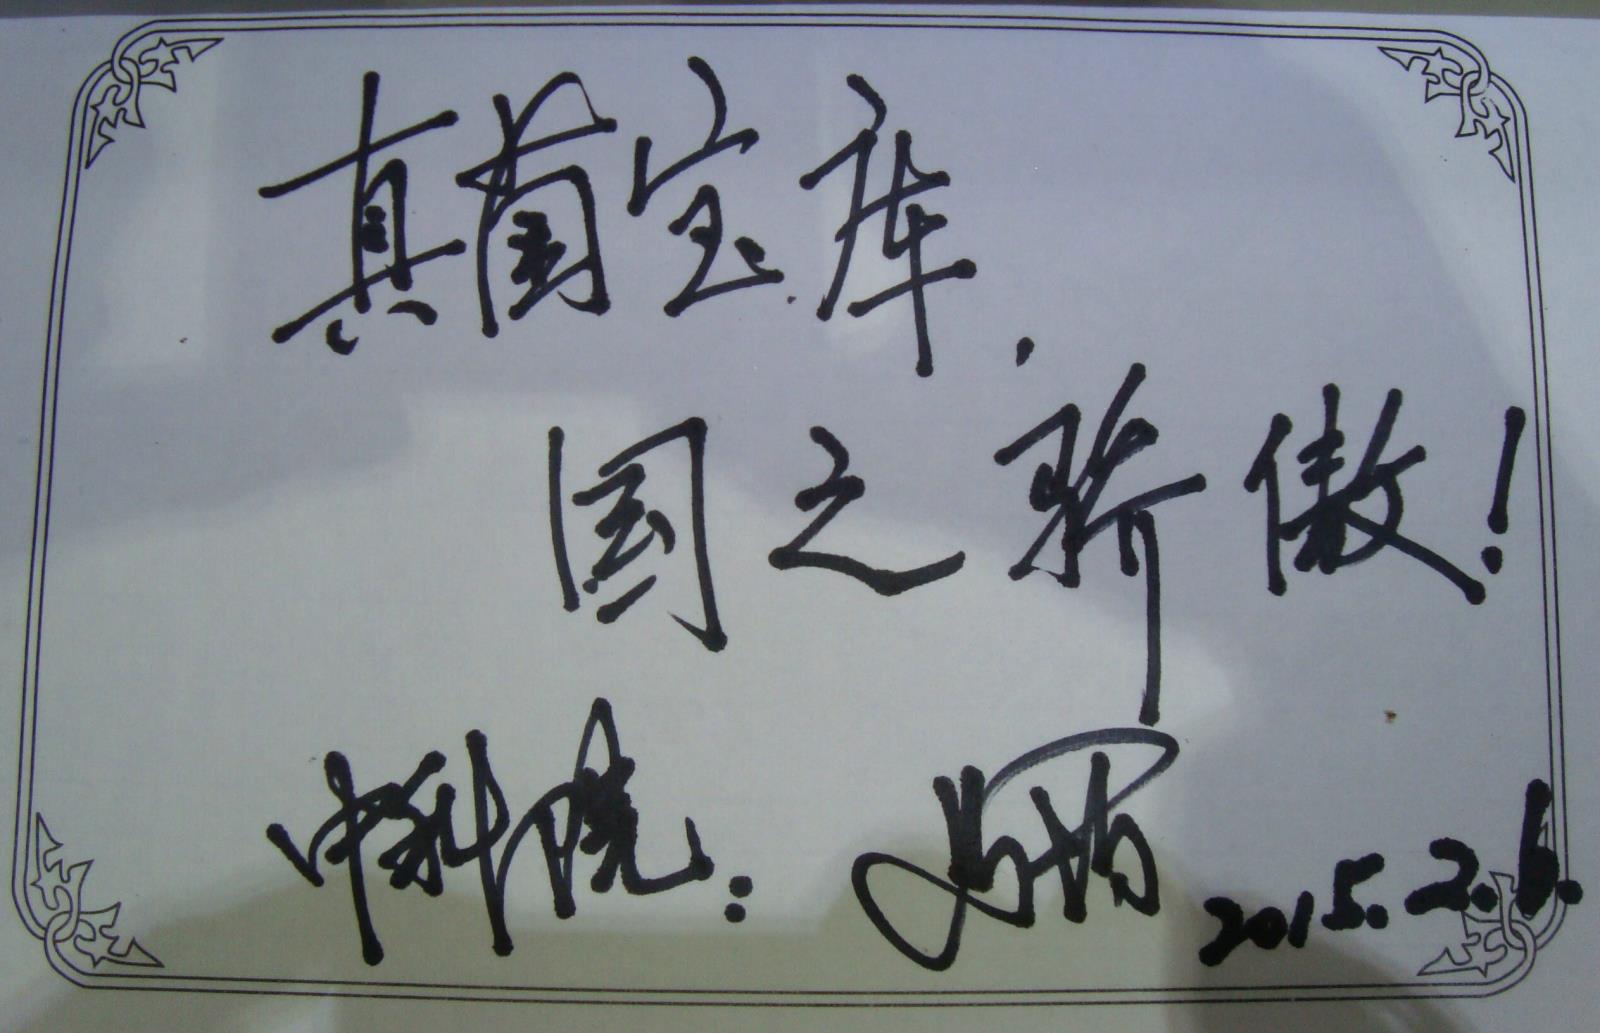 真菌宝库,
国之骄傲!
中科院: 2015.2.6.